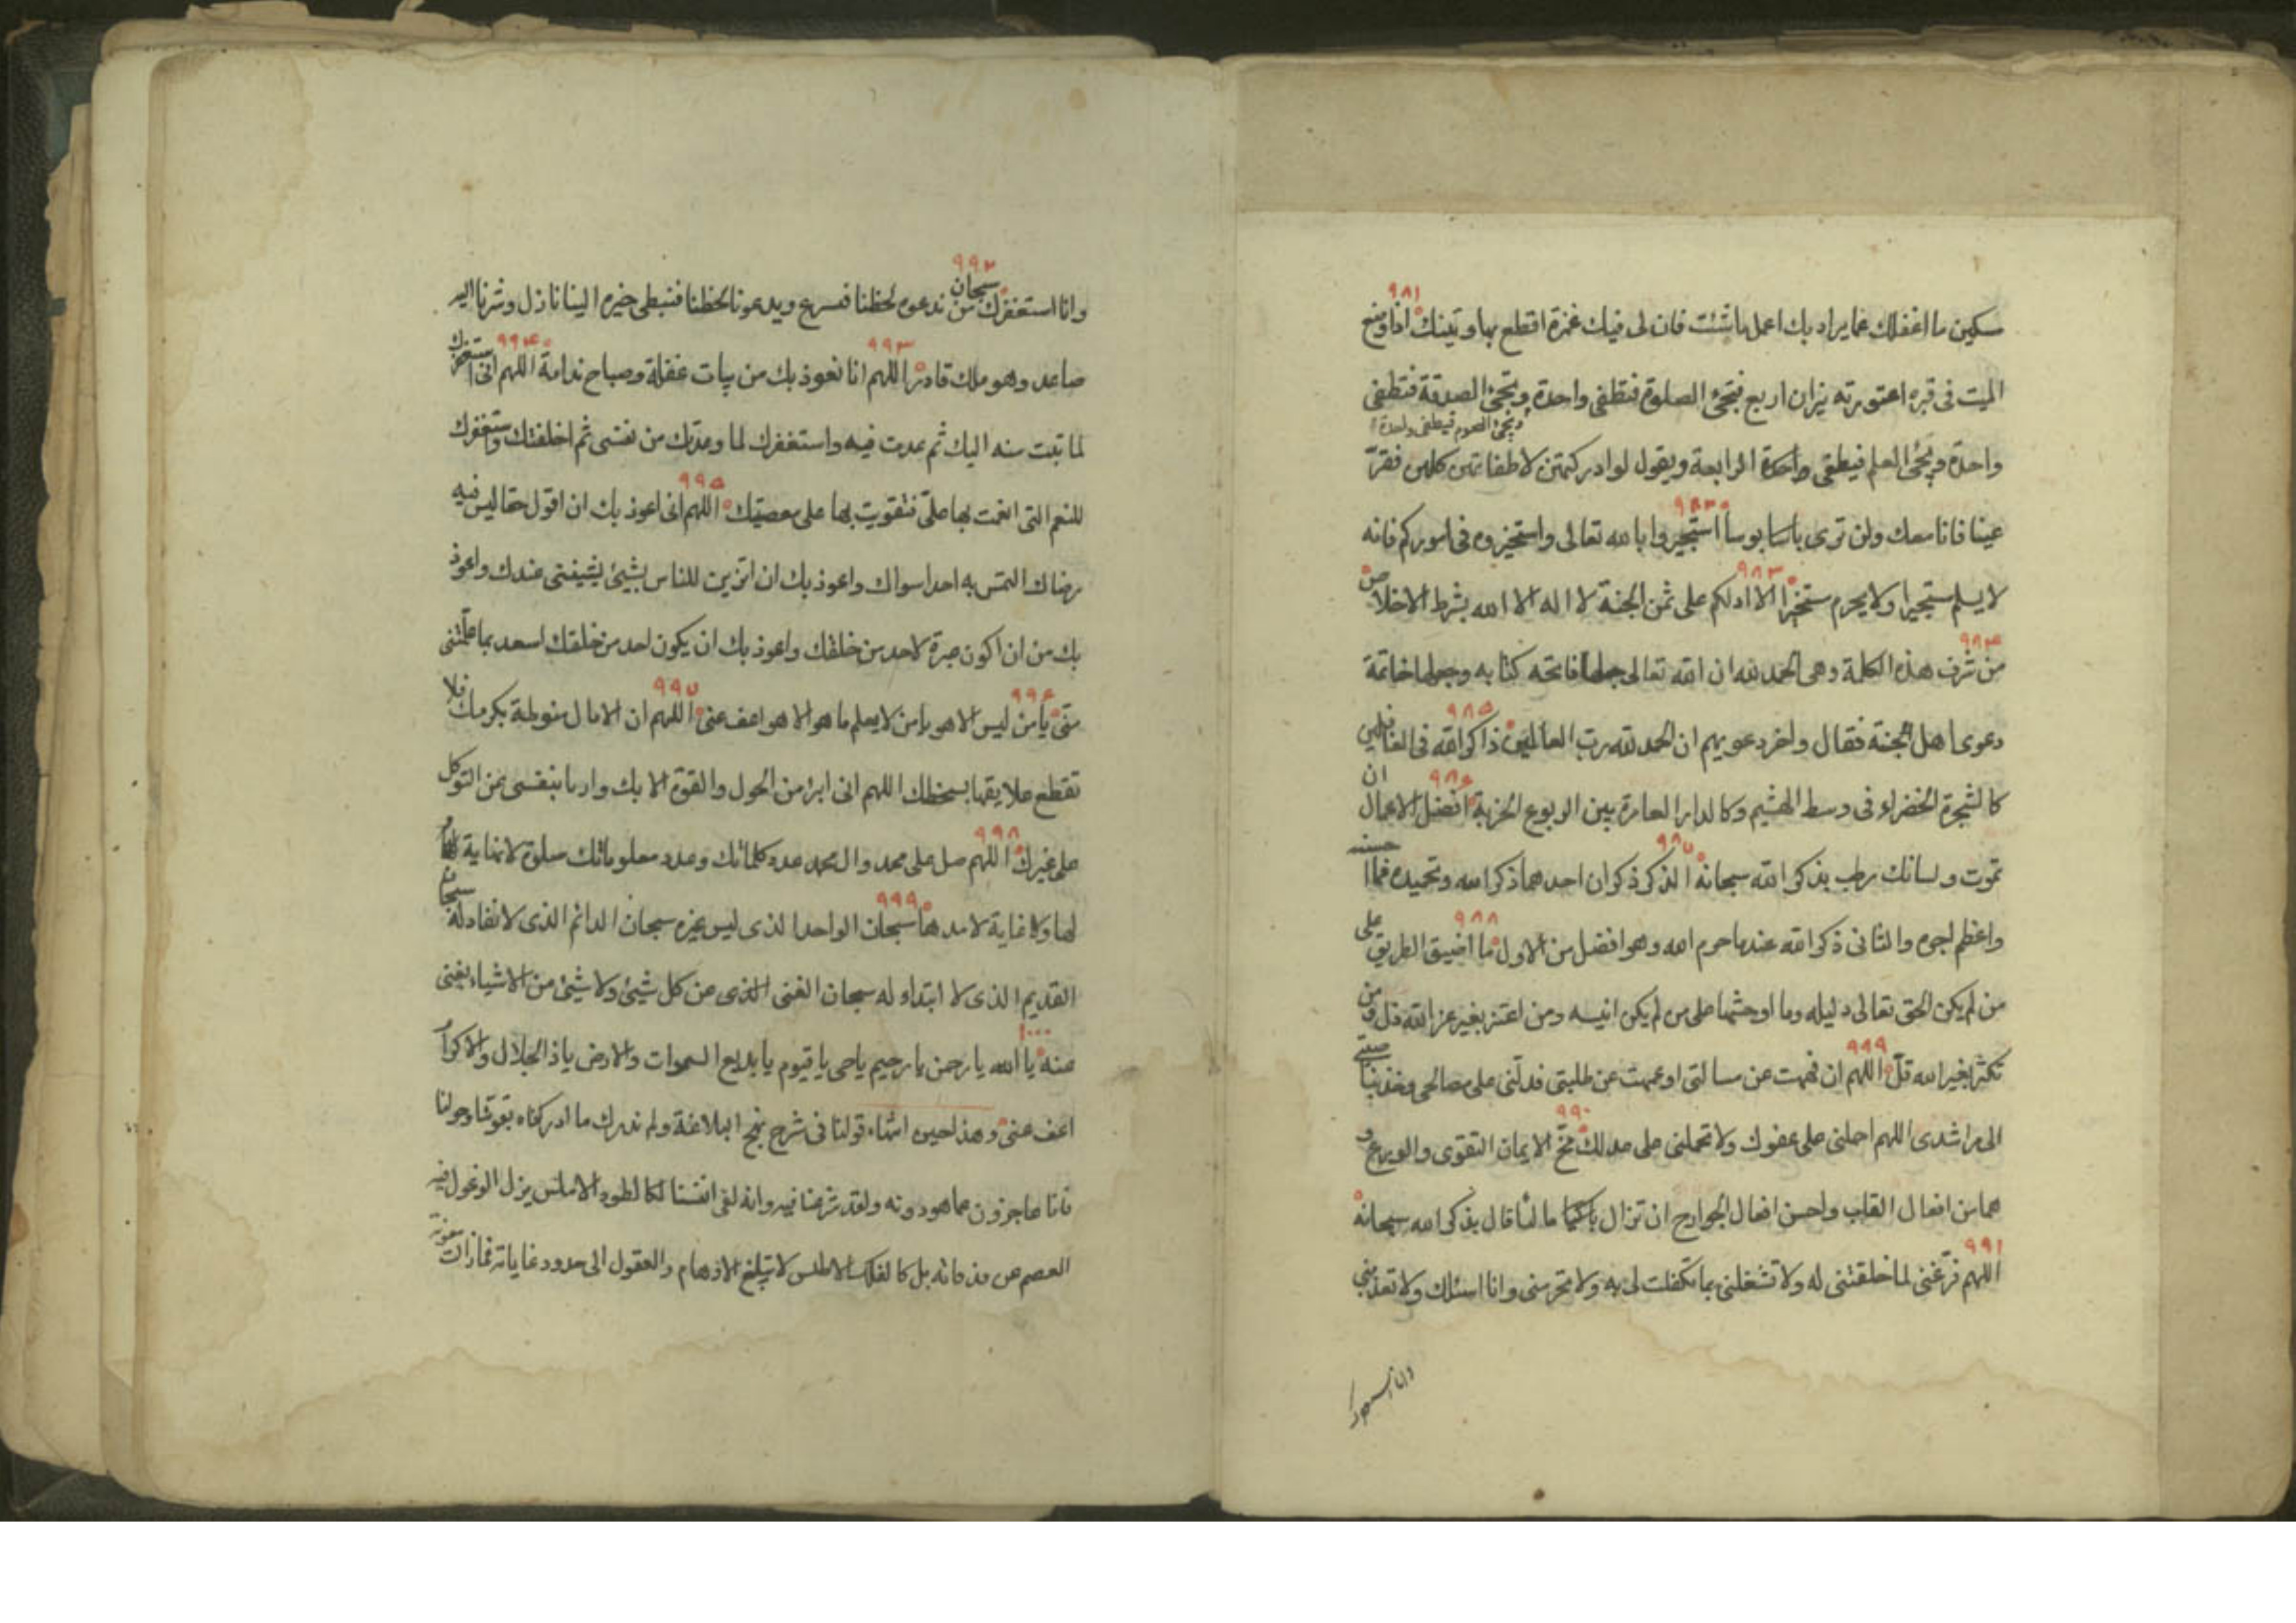 ٩٨١
سكين ما اغفلك عما يراد بك اعمل ما شئت فان لى فيك غمزة اقطع بها وتينك اذا وضع
الميت فى قبره اعتورته نيران اربع فتجئ الصلوة فتطفى واحدة وتجئ الصدقة فتطفى
ويجئ الصوم فيطفى واحدة
واحدة ويجئ العلم فيطفى واحدة الرابعة ويقول لو ادركتهن لاطفاتهن كلهن فقرّ
٩٨٢
عينا فانا معك ولن ترى باسا بوسا استجيروا بالله تعالى واستخيروه فى اموركم فانه
٩٨٣
لا يسلم مستجيرا ولا يحرم مستخيرا الا ادلكم على ثمن الجنة لا اله الا الله بشرط الاخلاص
٩٨٤
من شرف هذه الكلمة وهى الحمد لله ان الله تعالى جعلها فاتحه كتابه وجعلها خاتمة
٩٨٥
دعوى اهل الجنة فقال واخر دعويهم ان الحمد لله رب العالمين ذاكر الله فى الغافلين
٩٨٦
كالشجرة الخضراء فى وسط الهشيم وكالدار العامرة بين الربوع الخربة افضل الاعمال ان
٩٨٧
تموت ولسانك رطب بذكر الله سبحانه الذكر ذكران احدهما ذكر الله وتحميده فما احسنه
٩٨٨
واعظم اجره والثانى ذكر الله عند ما حرم الله وهو افضل من الاول ما اضيق الطريق على
من لم يكن الحق تعالى دليله وما اوحشها على من لم يكن انيسه ومن اعتز بغير عز الله ذل ومن
٩٨٩
تكثر بغير الله قل اللهم ان فههت عن مسالتى او عمهت عن طلبتى فدلنى على مصالحى وخذ بناصيتى
٩٩٠
الى مراشدى اللهم احملنى على عفوك ولا تحملنى على عدلك مخّ الايمان التقوى والورع و
هما من افعال القلب واحسن افعال الجوارح ان تزال مالئا فاك بذكر الله سبحانه
٩٩١
اللهم فرّغنى لما خلقتنى له ولا تشغلنى بما تكفلت لى به ولا تحرمنى وانا اسئلك ولا تعذبنى
وانا استغفرك
٩٩٢
وانا استغفرك سبحان من ندعوه لحظنا فيسرع ويدعونا لحظنا فنبطى خيره الينا نازل وشرنا اليه
٩٩٣ ٩٩٤
صاعد وهو ملك قادر اللهم انا نعوذ بك من بيات غفلة وصباح ندامة اللهم انى استغفرك
لما تبت منه اليك ثم عدت فيه واستغفرك لما وعدتك من نفسى ثم اخلفتك واستغفرك
٩٩٥
للنعم التى انعمت بها علىّ فتقويت بها على معصيتك اللهم انى اعوذ بك ان اقول حقا ليس فيه
رضاك التمس به احدا سواك واعوذ بك ان اتزين للناس بشيئ يشيننى عندك واعوذ
بك من ان اكون عبرة لاحد من خلقك واعوذ بك ان يكون احد من خلقك اسعد بما علّمتنى
٩٩٦ ٩٩٧
منى يا من ليس الا هو يا من لا يعلم ما هو الا هو اعف عنى اللهم ان الامال منوطة بكرمك فلا
تقطع علايقها بسخطك اللهم انى ابرء من الحول والقوة الا بك وادرء بنفسى عن التوكل
٩٩٨
على غيرك اللهم صل على محمد وال محمد عدد كلماتك وعدد معلوماتك صلوة لا نهاية
٩٩٩
لها ولا غاية لامدها سبحان الواحد الذى ليس غيره سبحان الدائم الذى لا نفاد له سبحان
القديم الذى لا ابتداء له سبحان الغنى الذى عن كل شيئ ولا شيئ من الاشياء يغنى
١٠٠٠
عنه يا الله يا رحمن يا رحيم يا حى يا قيوم يا بديع السموات والارض يا ذا الجلال والاكرام
اعف عنى وهذا حين انتهاء قولنا فى شرح نهج البلاغة ولم ندرك ما ادركناه بقوتنا وحولنا
فانا عاجزون عما هو دونه ولقد شرعنا فيه وانه لفى انفسنا كالطود الاملس يزل الوعول فيه
العصم عن قذفاته بل كالفلك الاطلس لا تبلغ الاوهام والعقول الى حدود غاياته فما زالت معونة